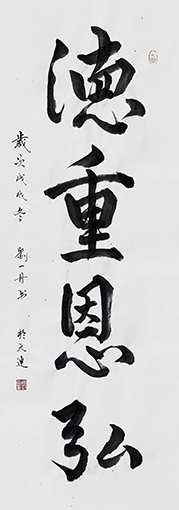 德重恩弘
歲次戊戌冬 劉一丹书 於大連